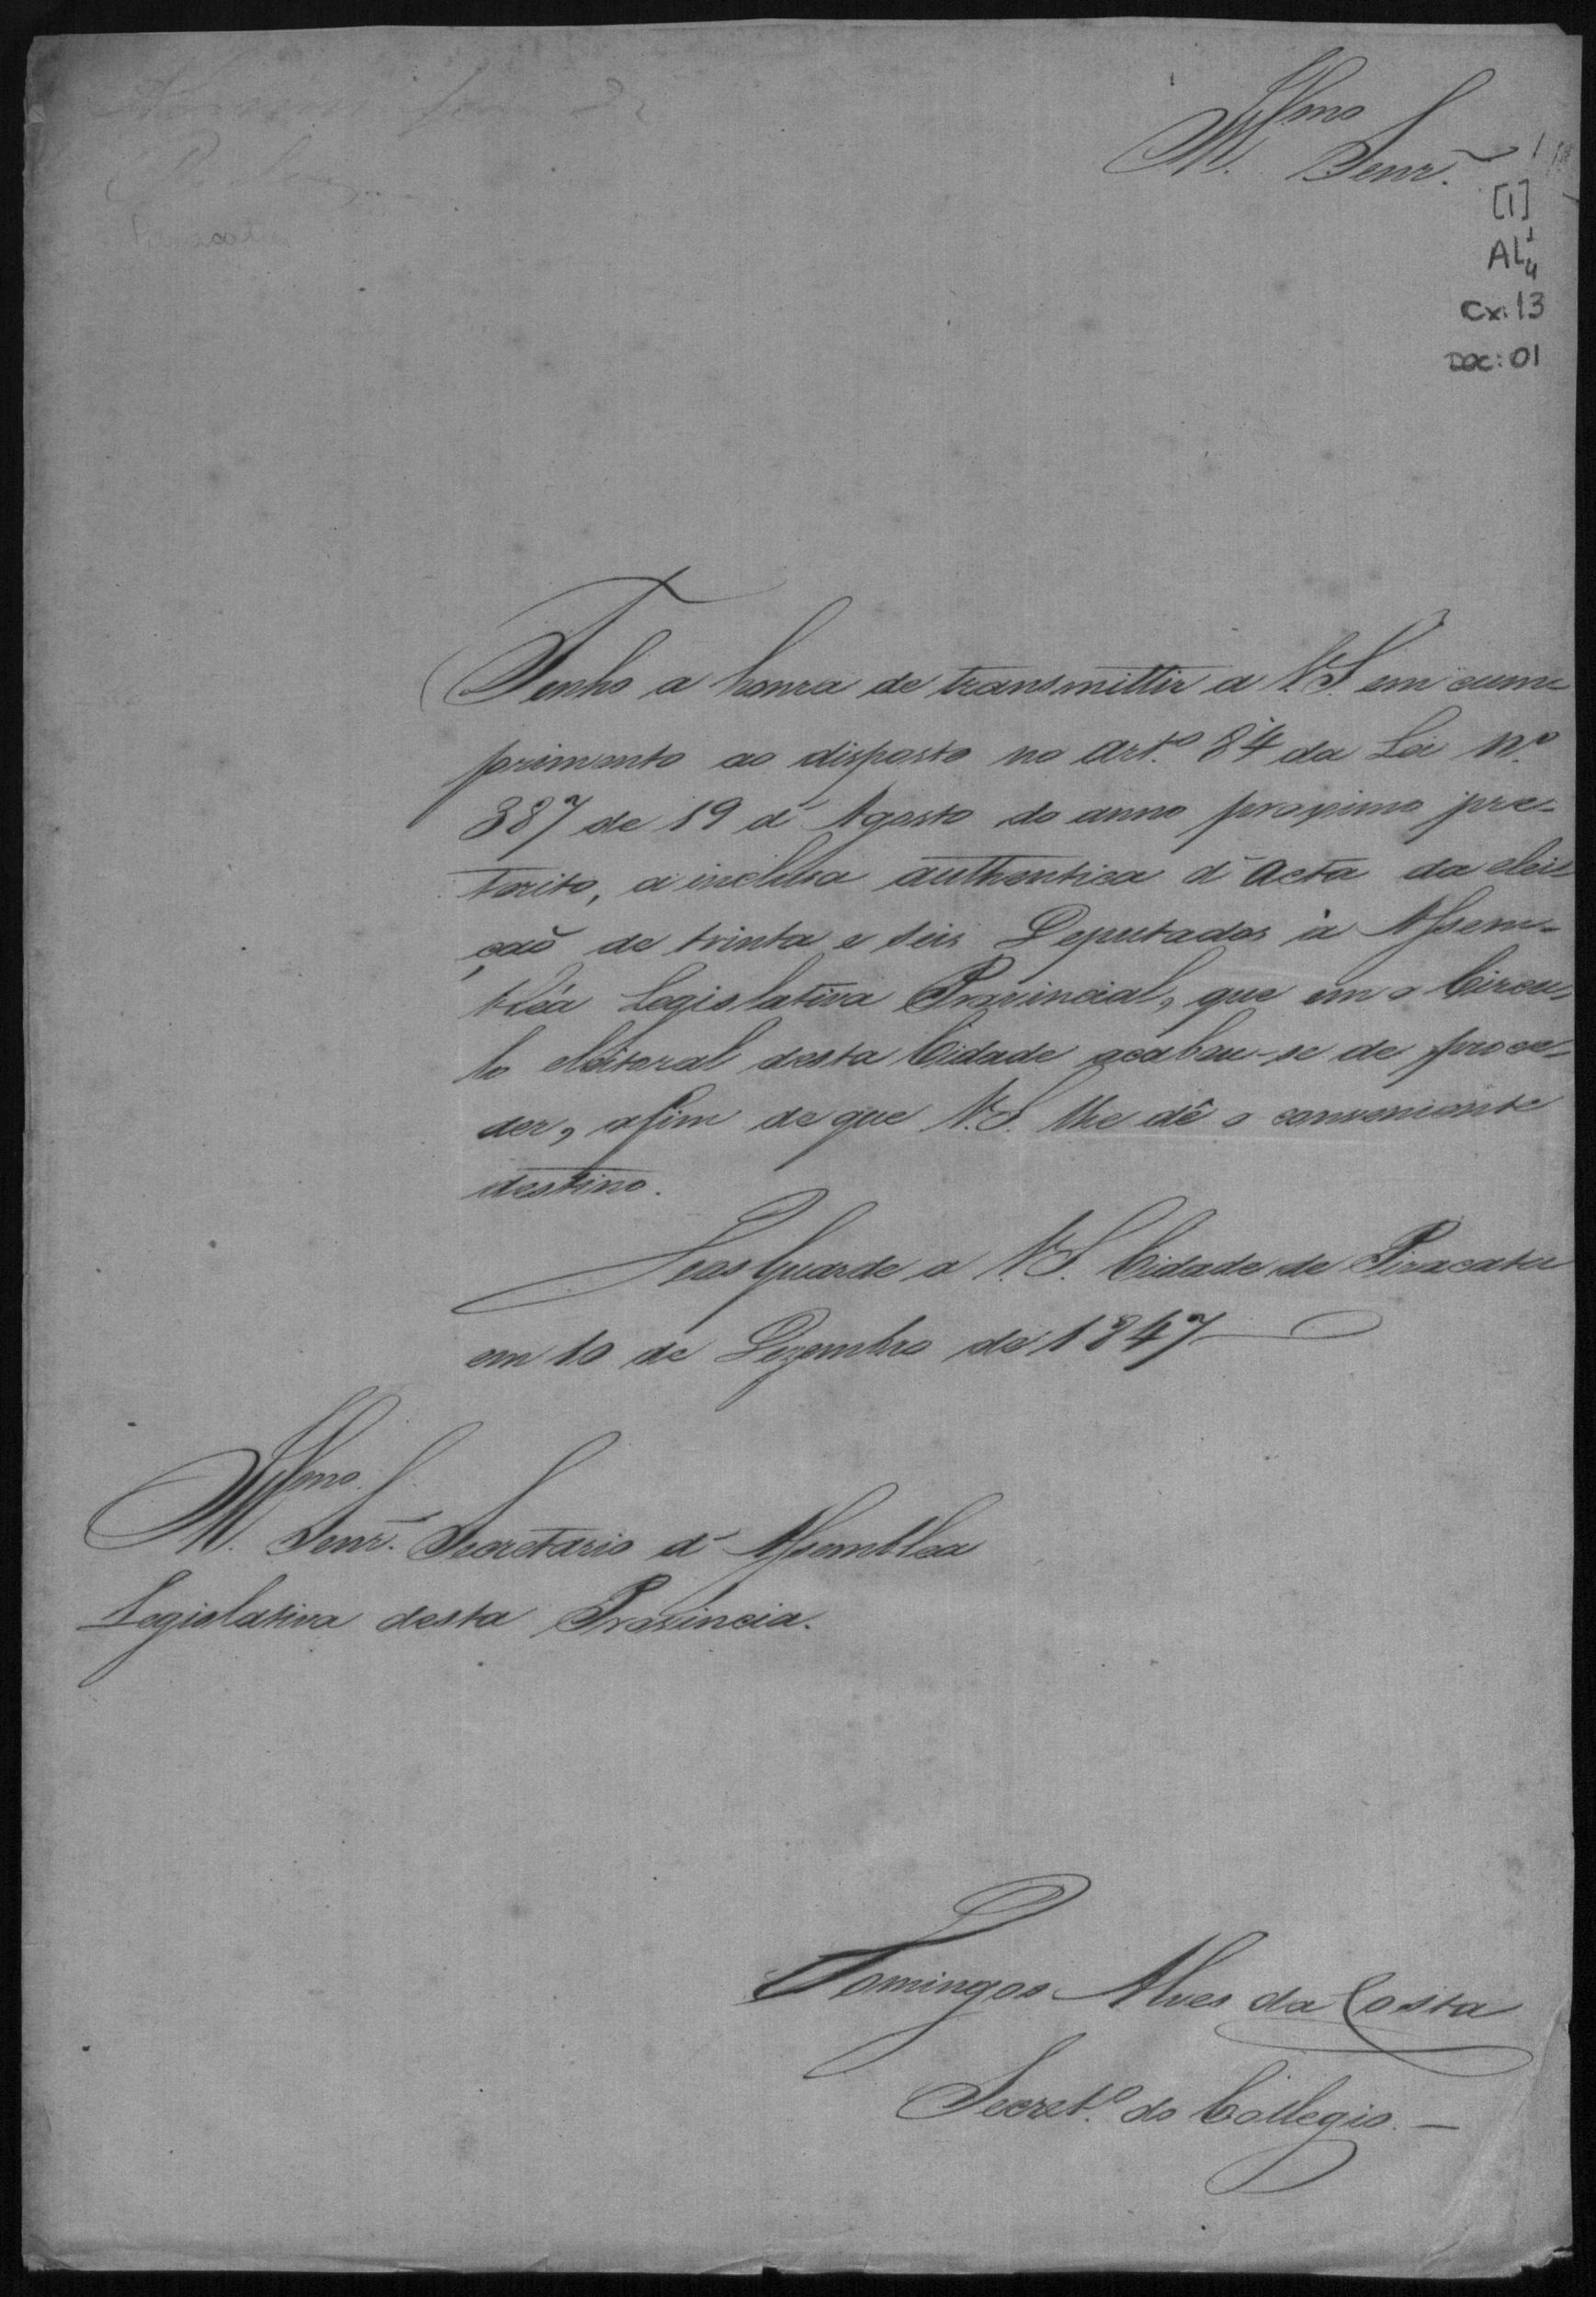 Illmo
Senr.
[1]
AL 1 4
Cx: 13
DOC: 01
Tenho a honra de transmittir a V.S. em cum=
primento ao disposto no art.º 84 da Lei N.º
387 de 19 d'Agosto do anno proximo pre=
terito, a inclusa authentica d'Acta da elei=
ção de trinta e seis Deputados á Assem=
bléa Legislativa Provincial, que em o Circu=
lo eleitoral desta Cidade acabou-se de proce=
der, afim de que V.S. lhe dê o conveniente
destino.
Deos Guarde a V.S. Cidade de Piracatu
em 10 de Dezembro de 1847
Illmo.
Senr. Secretario d'Assemblea
Legislativa desta Provincia.
Domingos Alves da Costa
Secret.º do Collegio.—